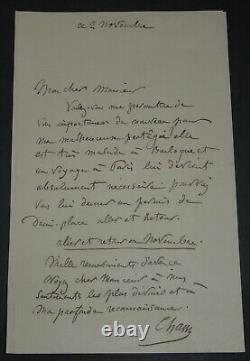 ce 2 Novembre
Mon cher Monsieur
Voulez-vous me permettre de
vous importuner de nouveau pour
ma malheureuse protégée elle
est très malade à Boulogne et
un voyage à Paris lui devient
absolument nécessaire pourriez
vous lui donner un permis de
Demi-place aller et retour.
aller et retour en Novembre.
Mille remerciments d'avance
Croyez cher Monsieur à mes
sentiments les plus dévoués et à
ma profonde reconnaissance.
Cham
© ebaytrace.com